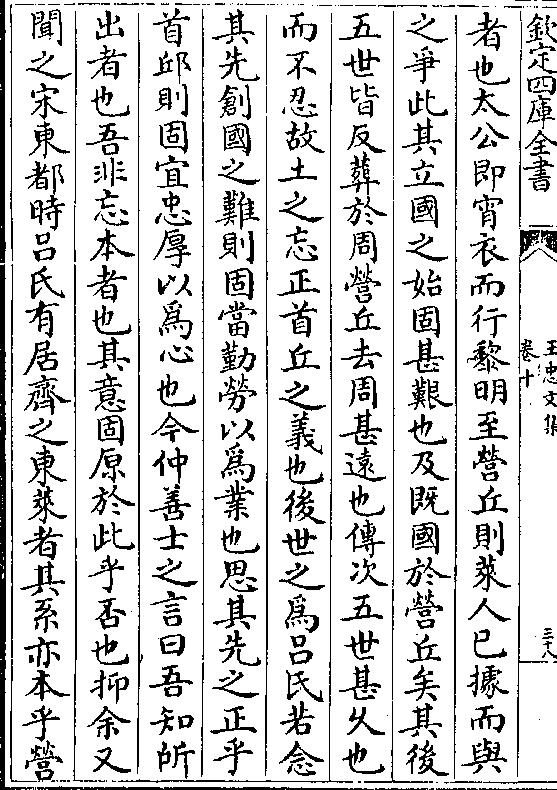 欽定四庫全書
王忠文集
卷十
三十八
者也太公即宵衣而行黎明至營丘則萊人已據而與
之爭此其立國之始固甚艱也及既國於營丘矣其後
五世皆反葬於周營丘去周甚遠也傳次五世甚乆也
而不忍故土之忘正首丘之義也後世之為吕氏若念
其先創國之難則固當勤勞以為業也思其先之正乎
首邱則固宜忠厚以為心也今仲善士之言曰吾知所
出者也吾非忘本者也其意固原於此乎否也抑余又
聞之宋東都時吕氏有居齊之東萊者其系亦本乎營